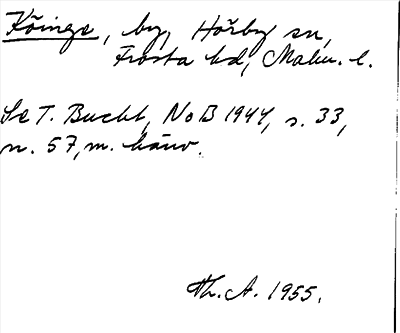 Köinge, by, Hörby sn,
Frosta hd, Malm. l.
Se T. Bucht, NoB 1944, s. 33,
n. 57, m. hänv.
Th. A. 1955.